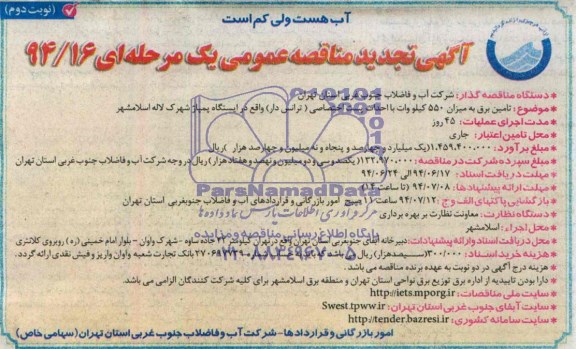 (نوبت دوم)
آب هست ولی کم است
آگهی تجدید مناقصه عمومی یک مرحله‌ای ۹۴/۱۶
دستگاه مناقصه گذار: شرکت آب و فاضلاب جنوب غربی استان تهران
موضوع: تامین برق به میزان ۵۵۰ کیلو وات با احداث پست اختصاصی (ترانس دار) واقع در ایستگاه پمپاژ شهرک لاله اسلامشهر
مدت اجرای عملیات: ۴۵ روز
محل تامین اعتبار: جاری
مبلغ برآورد: ۱.۴۵۹.۴۰۰.۰۰۰ (یک میلیارد و چهارصد و پنجاه و نه میلیون و چهارصد هزار) ریال
مبلغ سپرده شرکت در مناقصه: ۱۳۲.۹۷۰.۰۰۰ (یکصد و سی و دو میلیون و نهصد و هفتاد هزار) ریال در وجه شرکت آب و فاضلاب جنوب غربی استان تهران
مهلت دریافت اسناد: ۹۴/۰۶/۱۷ الی ۹۴/۰۶/۲۴
مهلت ارائه پیشنهادها: ۹۴/۰۷/۰۸ (تا ساعت ۱۴)
بازگشایی پاکتهای الف و ج: ۹۴/۰۷/۱۲ ساعت ۱۱ صبح امور بازرگانی و قراردادهای آب و فاضلاب جنوب غربی استان تهران
دستگاه نظارت: معاونت نظارت بر بهره برداری
محل اجراء: اسلامشهر
محل دریافت اسناد وارائه پیشنهادات: دبیرخانه آبفای جنوبغربی استان تهران واقع در تهران کیلومتر ۲۲ جاده ساوه - شهرک واوان - بلوار امام خمینی (ره) روبروی کلانتری
هزینه خرید اسناد: ۳۰۰/۰۰۰ (سیصد هزار) ریال بانک تجارت شعبه واوان واریز و فیش نقدی ارائه گردد.
هزینه درج آگهی در دو نوبت به عهده برنده مناقصه می باشد.
دارا بودن تاییدیه از اداره برق توزیع برق نواحی استان تهران و منطقه برق اسلامشهر برای کلیه شرکت کنندگان الزامی می باشد.
سایت ملی مناقصات: http://iets.mporg.ir
سایت آبفای جنوب غربی استان تهران: Swest.tpww.ir
سایت سامانه کشوری: http://tender.bazresi.ir
امور بازرگانی و قراردادها - شرکت آب و فاضلاب جنوب غربی استان تهران (سهامی خاص)
ParsNamadData
مرکز فرآوری اطلاعات پارس نماد داده ها
پایگاه اطلاع رسانی مناقصه و مزایده
۰۲۱-۸۸۳۴۹۶۷۰-۵